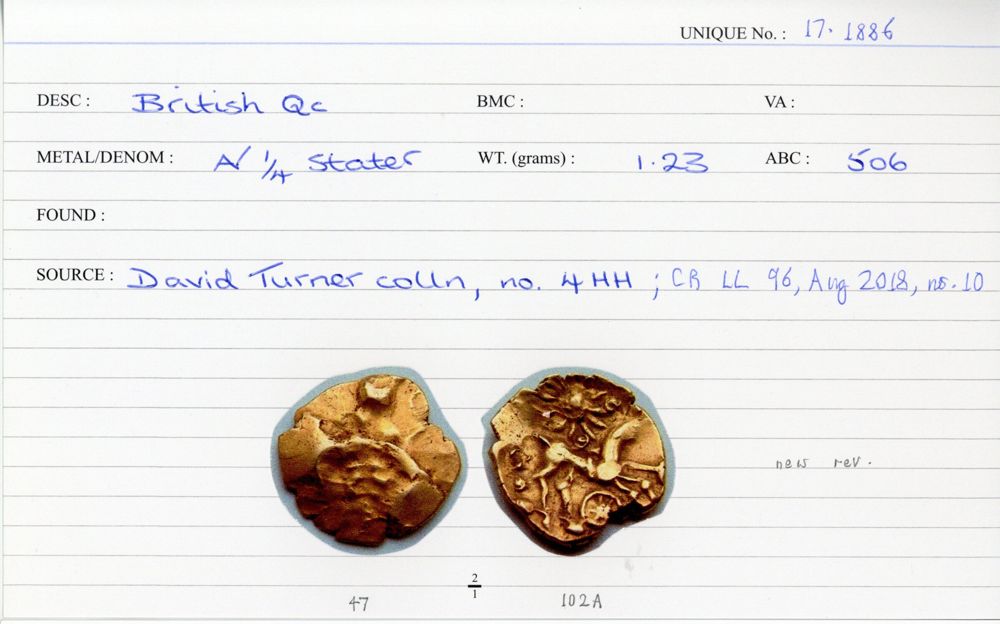 UNIQUE No. : 17.1886
DESC : British Qc BMC : VA :
METAL/DENOM : A/ 1/4 Stater WT. (grams) : 1.23 ABC : 506
FOUND :
SOURCE : David Turner colln, no. 4HH ; CR LL 96, Aug 2018, no. 10
new rev.
2/1
47 102A